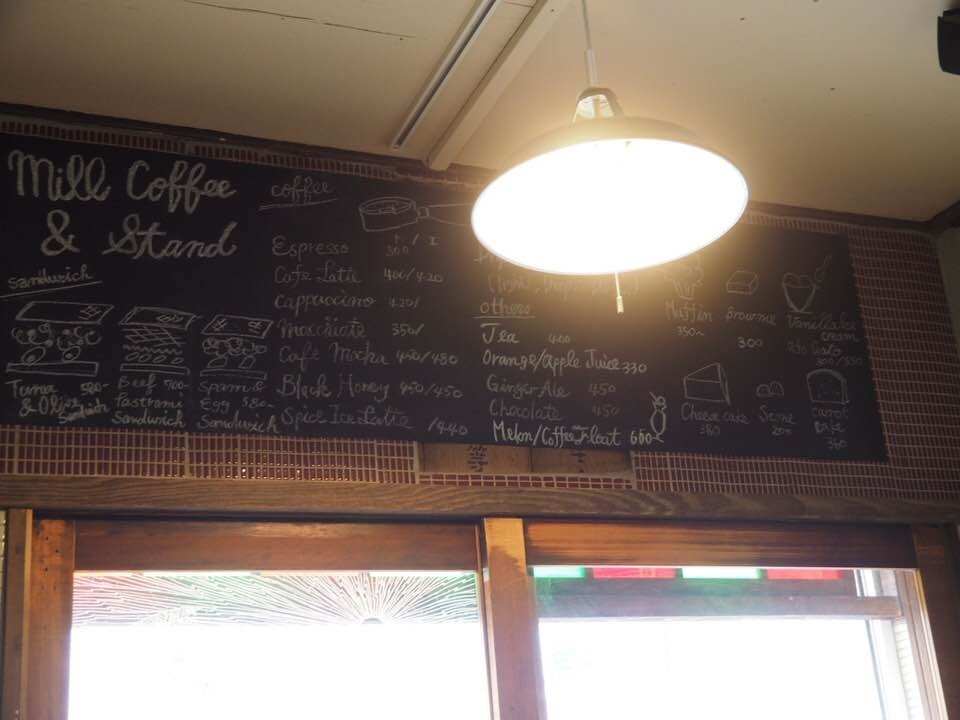 Mill Coffee
& Stand
sandwich
Tuna 580-
& Olive
Sandwich
Beef 700-
Pastrami
Sandwich
Spam &
Egg 580-
Sandwich
coffee
H / I
Espresso 300
Cafe Latte 400/420
Cappuccino 420/
Macchiato 350/
Café Mocha 450/480
Black Honey 450/450
Spice Ice Latte /440
others
Tea 400
Orange/Apple Juice 330
Ginger Ale 450
Chocolate 450
Melon/Coffee Float 600-
Muffin
350~
brownie
300
Vanilla Ice
cream
Cheese cake
380
Scone
200
carrot
cake
360